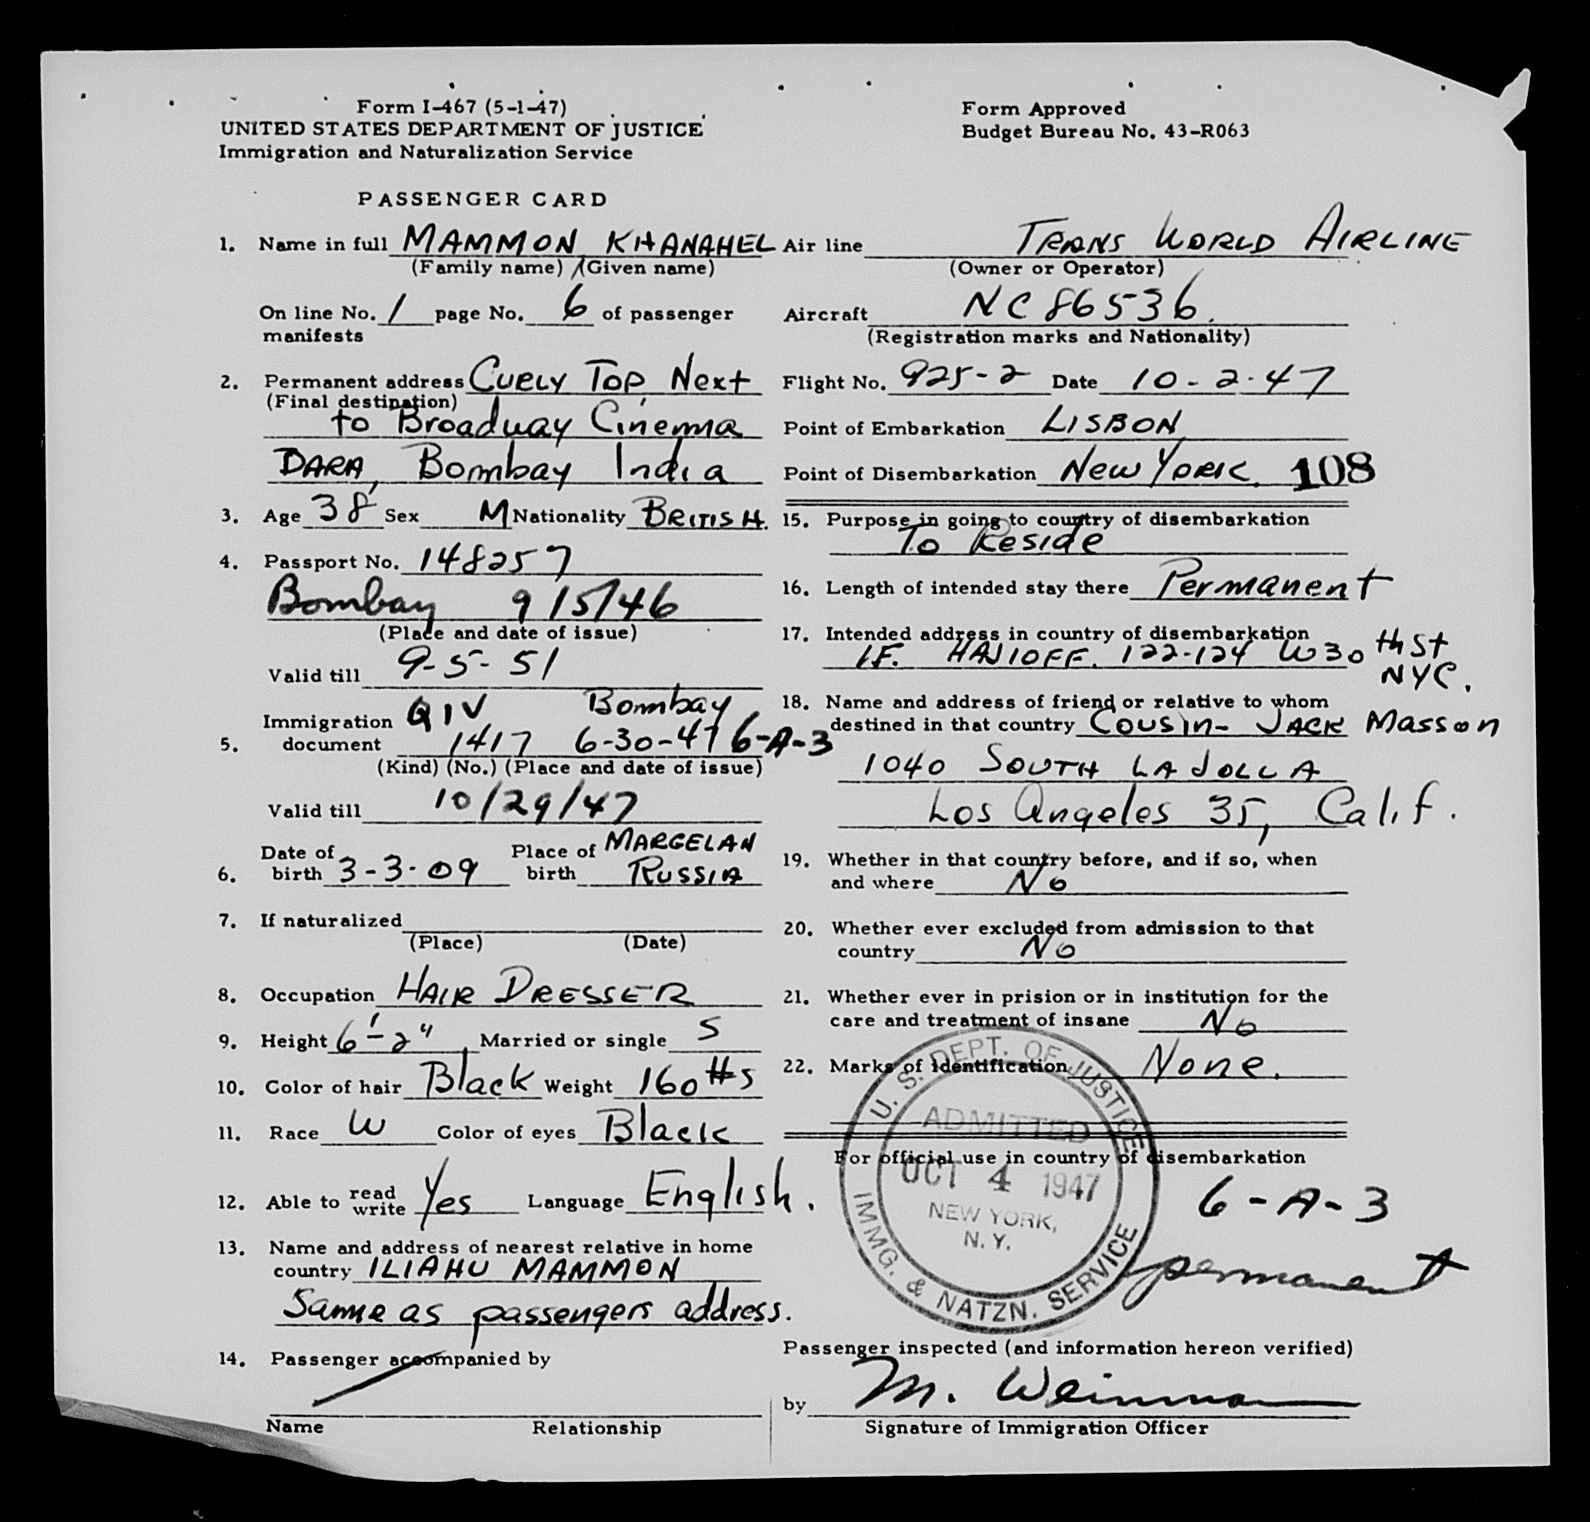 Form I-467 (5-1-47)
UNITED STATES DEPARTMENT OF JUSTICE
Immigration and Naturalization Service
Form Approved
Budget Bureau No. 43-R063
PASSENGER CARD
1. Name in full MAMMON, KHANAHEL
(Family name) (Given name)
On line No. 1 page No. 6 of passenger
manifests
2. Permanent address CURLY TOP, Next
(Final destination)
to Broadway Cinema
DARA, Bombay India
3. Age 38 Sex M Nationality BRITISH.
4. Passport No. 148257
Bombay 9/5/46
(Place and date of issue)
Valid till 9-5-51
5. Immigration document QIV Bombay
1417 6-30-47 6-A-3
(Kind) (No.) (Place and date of issue)
Valid till 10/29/47
6. Date of birth 3-3-09 Place of birth MARGELAN
RUSSIA
7. If naturalized
(Place) (Date)
8. Occupation HAIR DRESSER
9. Height 6'-2", Married or single S
10. Color of hair Black Weight 160 #s
11. Race W Color of eyes Black
12. Able to read write Yes Language English.
13. Name and address of nearest relative in home
country ILIAHU MAMMON
Same as passengers address.
14. Passenger accompanied by
Name Relationship
Air line TRANS WORLD AIRLINE
(Owner or Operator)
Aircraft NC 86536.
(Registration marks and Nationality)
Flight No. 925-2 Date 10-2-47
Point of Embarkation LISBON
Point of Disembarkation NEW YORK. 108
15. Purpose in going to country of disembarkation
To Reside
16. Length of intended stay there Permanent
17. Intended address in country of disembarkation
I.F. HAJIOFF. 122-124 W 30 th St
NYC.
18. Name and address of friend or relative to whom
destined in that country COUSIN- JACK Masson
1040 SOUTH LA JOLLA
Los Angeles 35, Calif.
19. Whether in that country before, and if so, when
and where No
20. Whether ever excluded from admission to that
country No
21. Whether ever in prision or in institution for the
care and treatment of insane No
22. Marks of Identification None.
For official use in country of disembarkation
U. S. DEPT. OF JUSTICE
ADMITTED
OCT 4 1947
NEW YORK,
N. Y.
IMMG. & NATZN. SERVICE
6-A-3
permanent
Passenger inspected (and information hereon verified)
by M. Weinman
Signature of Immigration Officer